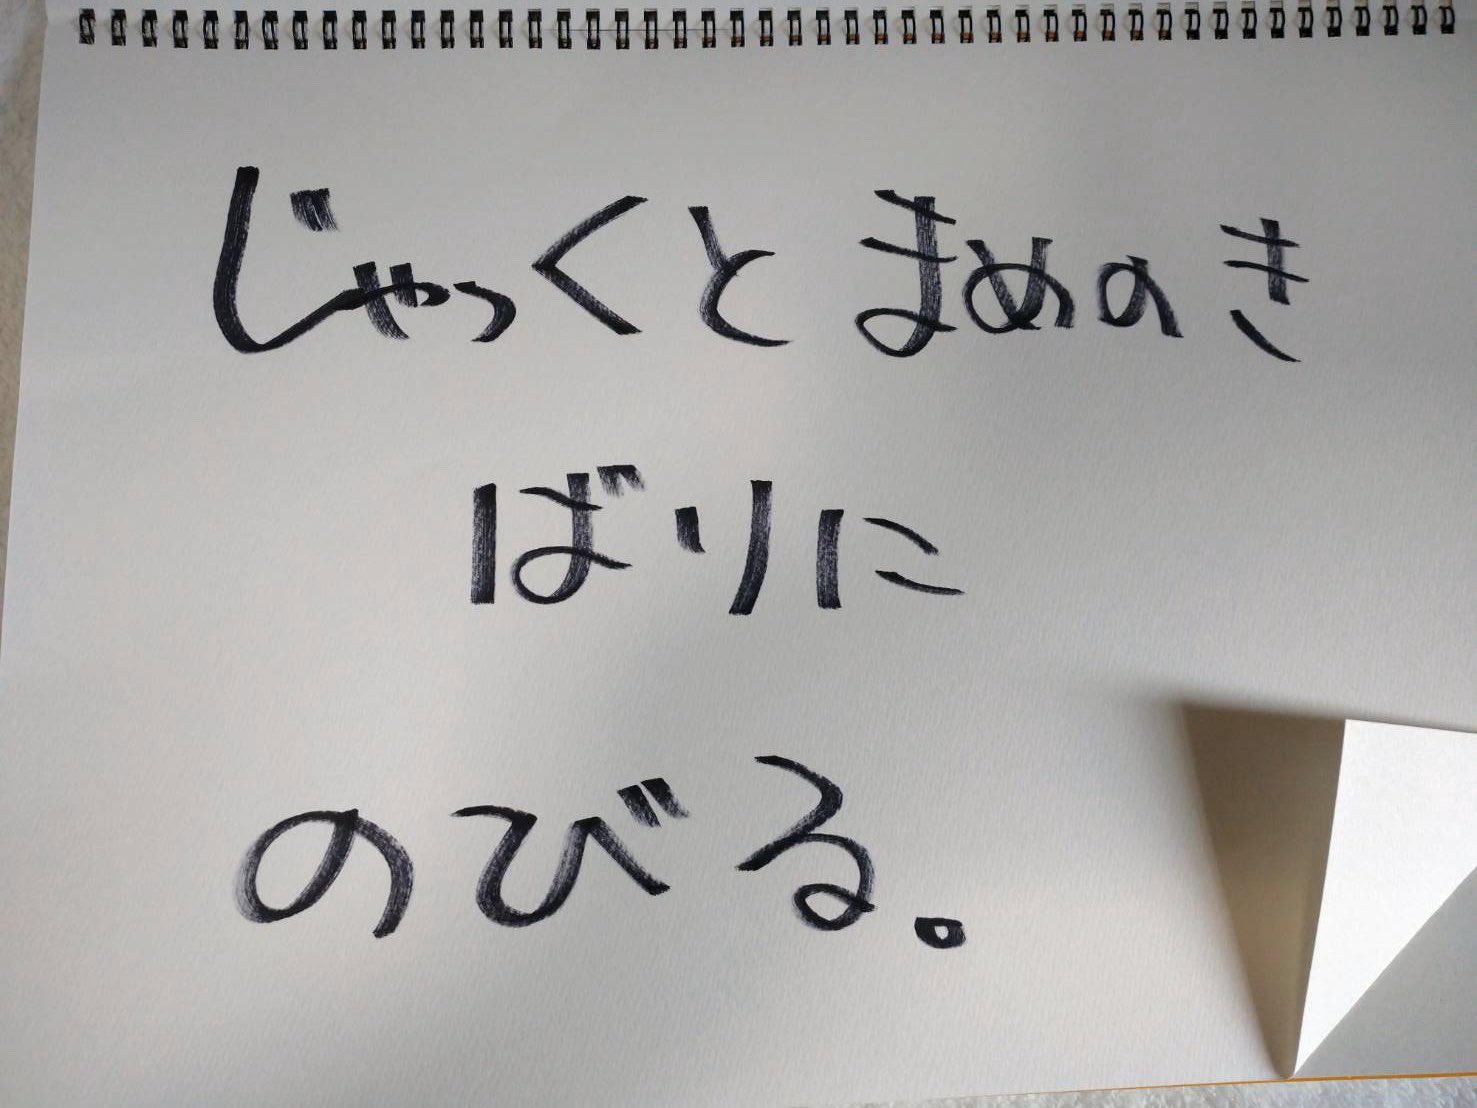 じゃっくと まめのき
ばりに
のびる。